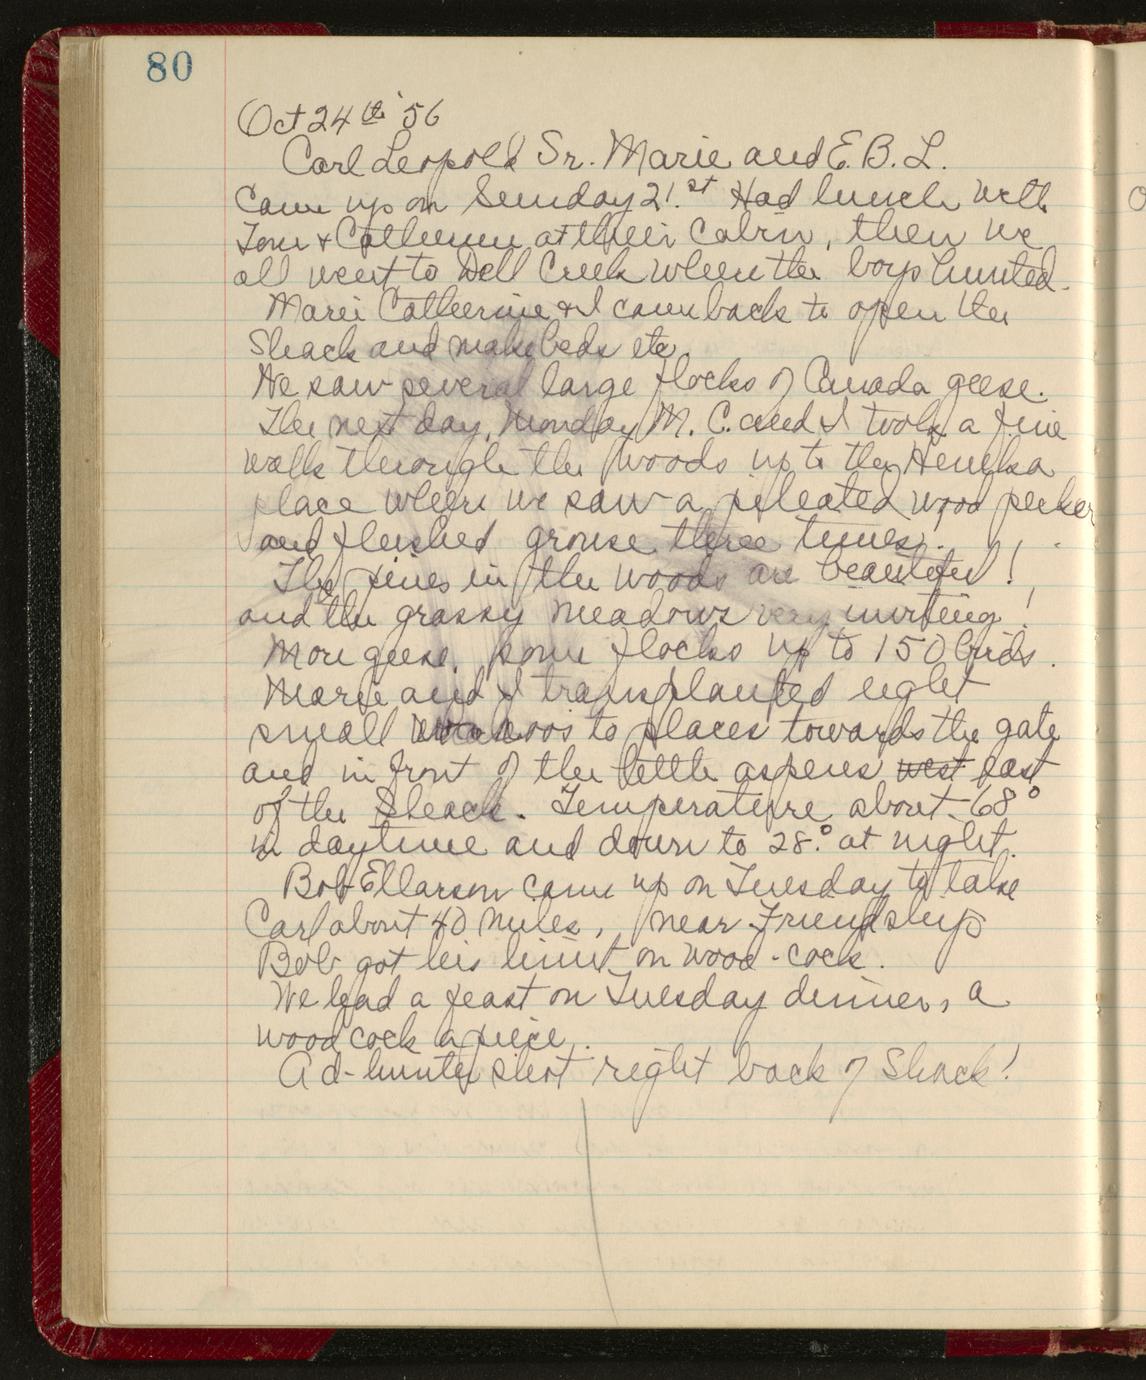 80
Oct 24th '56
Carl Leopold Sr. Marie and E. B. L.
Came up on Sunday 21.st Had lunch with
Tom & Catherine at their Cabin, then we
all went to Dell Creek where the boys hunted.
Marie Catherine & I came back to open the
Shack and make beds etc.
We saw several large flocks of Canada geese.
The next day, Monday M. C. and I took a fine
walk through the woods up to the
place where we saw a pileated wood pecker
and flushed grouse three times.
The pines in the woods are beautiful!
and the grassy meadows very inviting!
More geese, some flocks up to 150 birds.
Marie and I transplanted eight
small to places towards the gate
and in front of the little aspens west East
of the Shack. Temperature about 68°
in daytime and down to 28.° at night.
Bob Ellarson came up on Tuesday to take
Carl about 40 miles, near Friendship
Bob got his limit on wood-cock.
We had a feast on Tuesday dinner, a
wood cock apiece.
Ad-hunter shot right back of Shack!